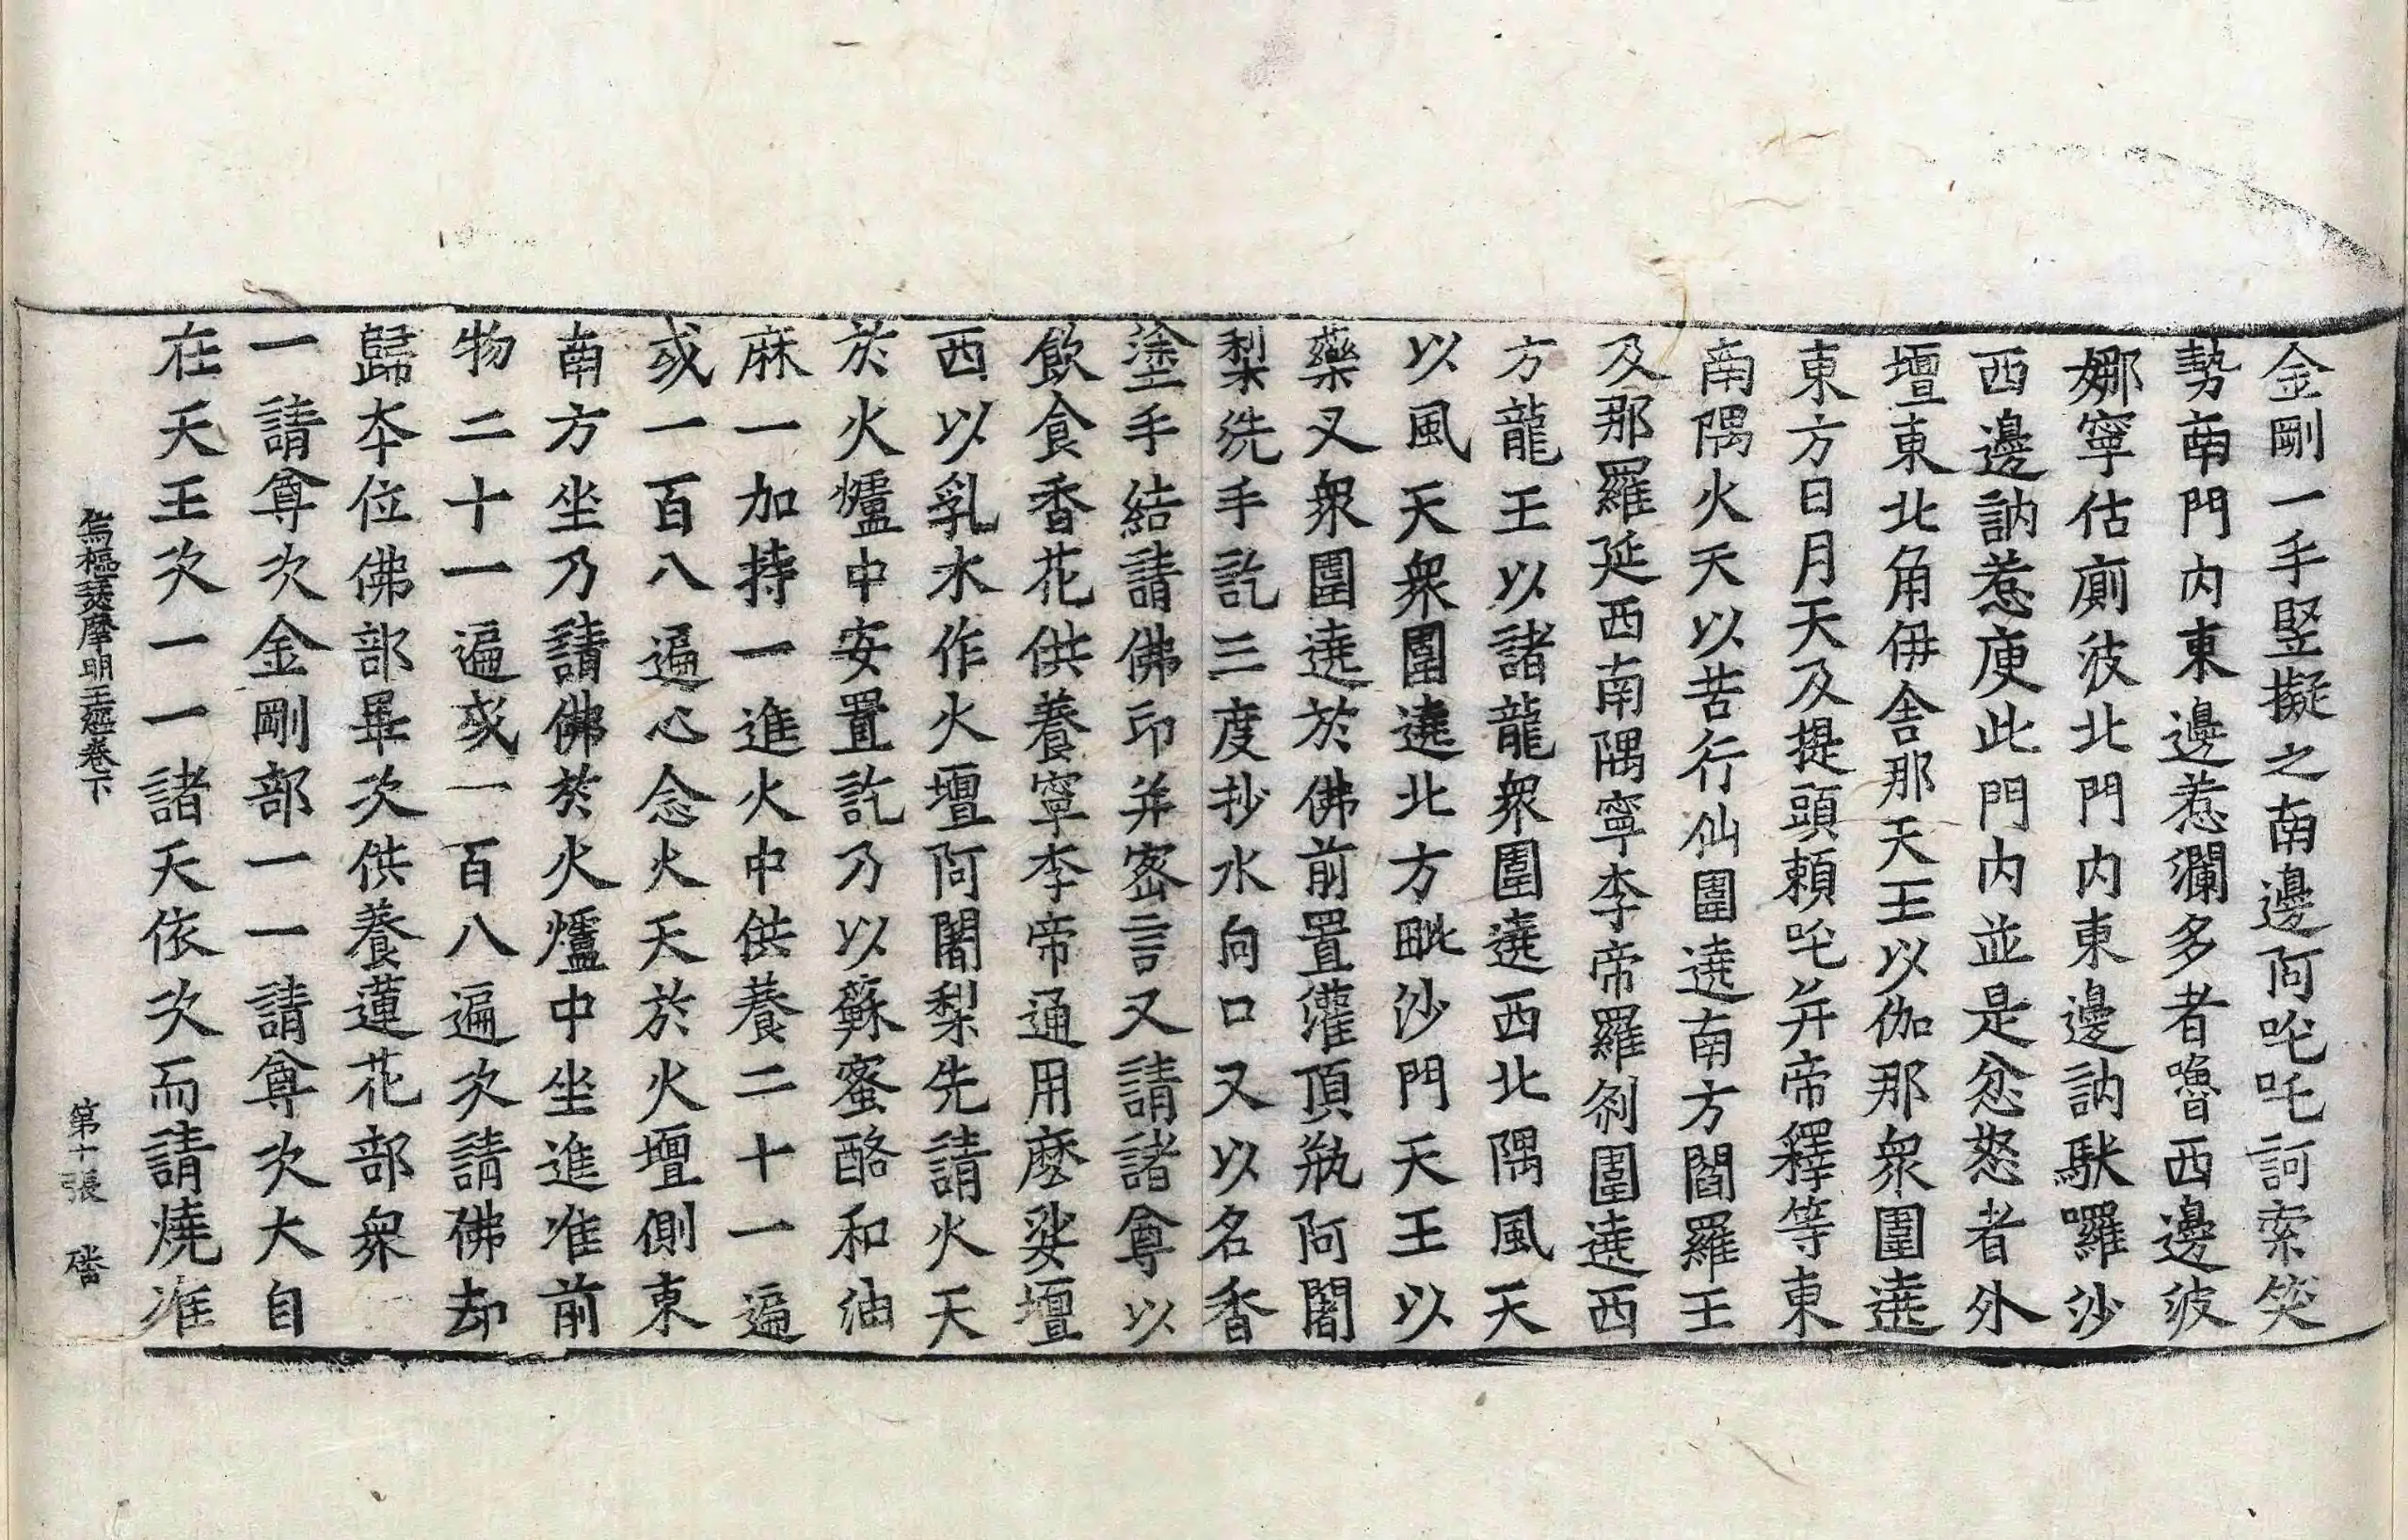 金剛一手竪擬之南邊阿吒吒訶索笑
勢南門內東邊惹瀾多者嚕西邊彼
娜寧估廁彼北門內東邊訥馱囉沙
西邊訥惹庾此門內並是忿怒者外
壇東北角伊舍那天王以伽那衆圍遶
東方日月天及提頭頼吒并帝釋等東
南隅火天以苦行仙圍遶南方閻羅王
及那羅延西南隅寧李帝羅剎圍遶西
方龍王以諸龍衆圍遶西北隅風天
以風天衆圍遶北方毗沙門天王以
藥叉衆圍遶於佛前置灌頂瓶阿闍
梨洗手訖三度抄水向口又以名香
塗手結請佛印并密言又請諸尊以
飲食香花供養寧李帝通用麽娑壇
西以乳水作火壇阿闍梨先請火天
於火爐中安置訖乃以蘇蜜酪和油
麻一加持一進火中供養二十一遍
或一百八遍心念火天於火壇側東
南方坐乃請佛於火爐中坐進准前
物二十一遍或一百八遍次請佛却
歸本位佛部畢次供養蓮花部衆
一請尊次金剛部一一請尊次大自
在天王次一一諸天依次而請燒准
烏樞瑟摩明王經卷下　第十張